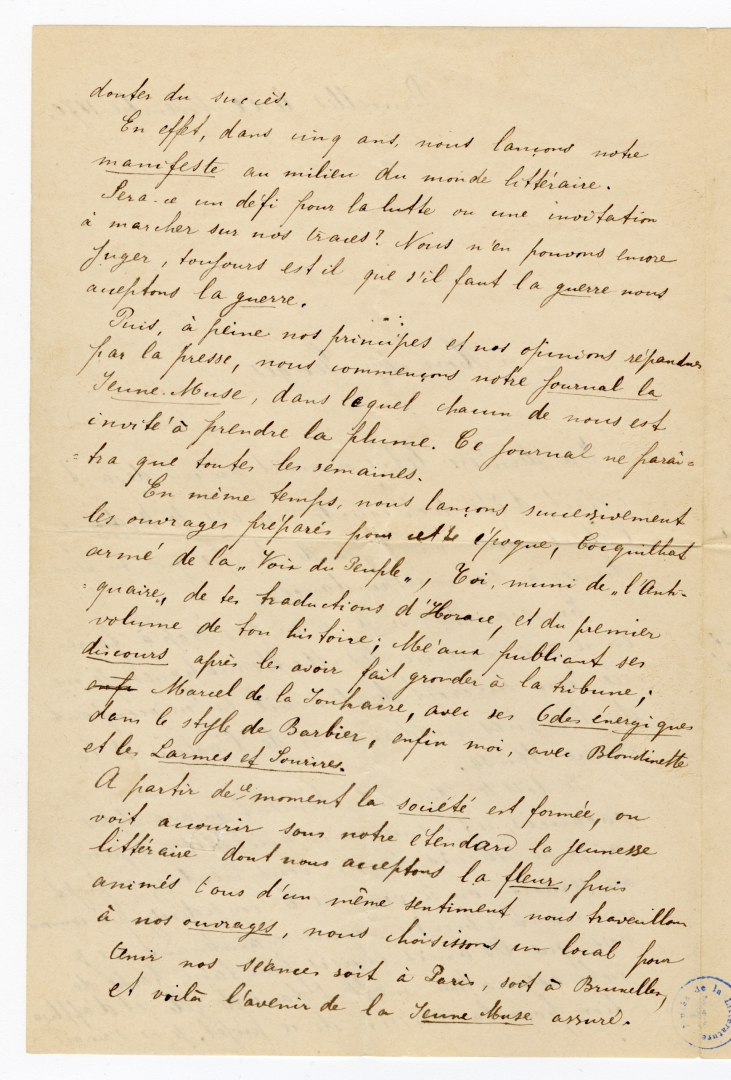 douter du succès.
En effet, dans cinq ans, nous lançons notre
manifeste au milieu du monde littéraire.
Sera-ce un défi pour la lutte ou une invitation
à marcher sur nos traces? Nous n'en pouvons encore
juger, toujours est il que s'il faut la guerre nous
acceptons la guerre.
Puis, à peine nos principes et nos opinions répandues
par la presse, nous commençons notre journal la
Jeune-Muse, dans lequel chacun de nous est
invité à prendre la plume. Ce journal ne paraî=
=tra que toutes les semaines.
En même temps, nous lançons successivement
les ouvrages préparés pour cette époque, Cocquilhat
armé de la „Voix du Peuple„, Toi, muni de „l'Anti-
=quaire„, de tes traductions d'Horace, et du premier
volume de ton histoire; Méaux publiant ses
discours après les avoir fait gronder à la tribune;
enfin Marcel de la Tonkaire, avec ses Odes énergiques
dans le style de Barbier, enfin moi, avec Blondinette
et les Larmes et Sourires.
A partir de ce moment la société est formée, on
voit accourir sous notre étendard la jeunesse
littéraire dont nous acceptons la fleur, puis
animés tous d'un même sentiment nous travaillons
à nos ouvrages, nous choisissons un local pour
tenir nos séances soit à Paris, soit à Bruxelles,
et voilà l'avenir de la Jeune Muse assuré.
de la